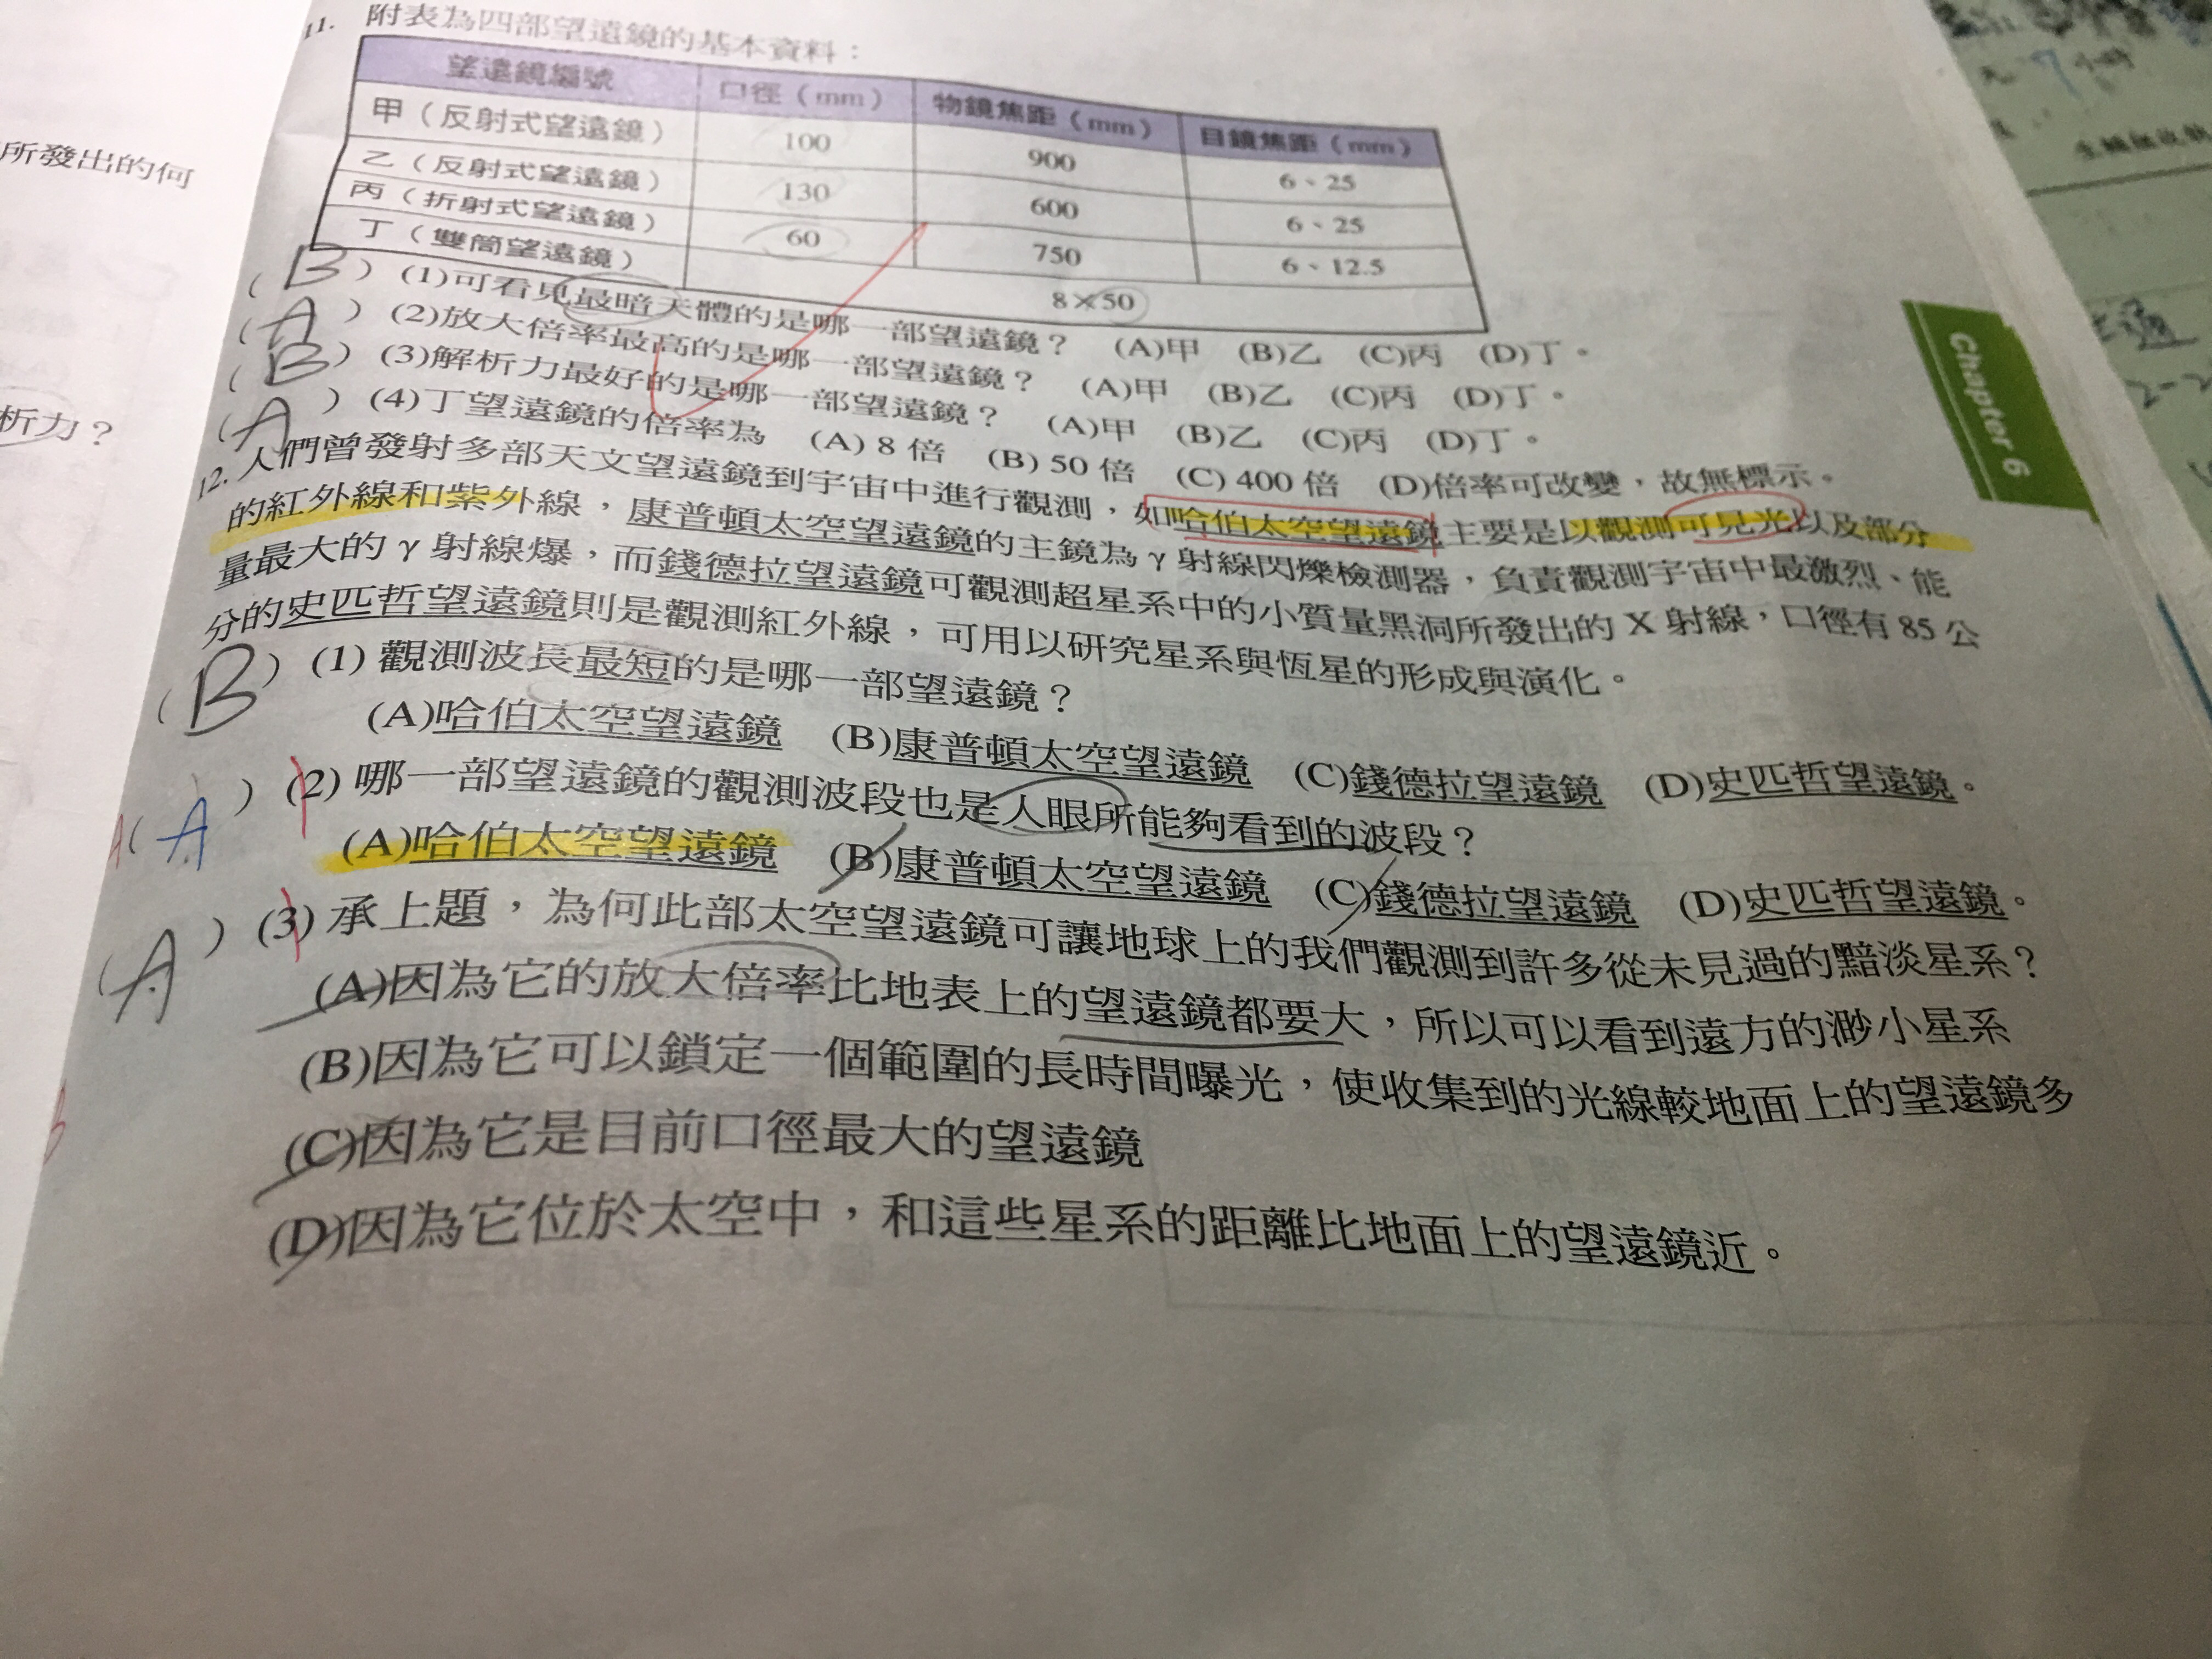 11. 附表為四部望遠鏡的基本資料：
望遠鏡編號 口徑（mm） 物鏡焦距（mm） 目鏡焦距（mm）
甲（反射式望遠鏡） 100 900 6、25
乙（反射式望遠鏡） 130 600 6、25
丙（折射式望遠鏡） 60 750 6、12.5
丁（雙筒望遠鏡） 8×50
( B ) (1)可看見最暗天體的是哪一部望遠鏡？ (A)甲 (B)乙 (C)丙 (D)丁。
( A ) (2)放大倍率最高的是哪一部望遠鏡？ (A)甲 (B)乙 (C)丙 (D)丁。
( B ) (3)解析力最好的是哪一部望遠鏡？ (A)甲 (B)乙 (C)丙 (D)丁。
( A ) (4)丁望遠鏡的倍率為 (A) 8 倍 (B) 50 倍 (C) 400 倍 (D)倍率可改變，故無標示。
12. 人們曾發射多部天文望遠鏡到宇宙中進行觀測，如哈伯太空望遠鏡主要是以觀測可見光以及部分
的紅外線和紫外線，康普頓太空望遠鏡的主鏡為 γ 射線閃爍檢測器，負責觀測宇宙中最激烈、能
量最大的 γ 射線爆，而錢德拉望遠鏡可觀測超星系中的小質量黑洞所發出的 X 射線，口徑有 85 公
分的史匹哲望遠鏡則是觀測紅外線，可用以研究星系與恆星的形成與演化。
( B ) (1) 觀測波長最短的是哪一部望遠鏡？
(A)哈伯太空望遠鏡 (B)康普頓太空望遠鏡 (C)錢德拉望遠鏡 (D)史匹哲望遠鏡。
A ( A ) (2) 哪一部望遠鏡的觀測波段也是人眼所能夠看到的波段？
(A)哈伯太空望遠鏡 (B)康普頓太空望遠鏡 (C)錢德拉望遠鏡 (D)史匹哲望遠鏡。
( A ) (3) 承上題，為何此部太空望遠鏡可讓地球上的我們觀測到許多從未見過的黯淡星系？
(A)因為它的放大倍率比地表上的望遠鏡都要大，所以可以看到遠方的渺小星系
B (B)因為它可以鎖定一個範圍的長時間曝光，使收集到的光線較地面上的望遠鏡多
(C)因為它是目前口徑最大的望遠鏡
(D)因為它位於太空中，和這些星系的距離比地面上的望遠鏡近。
Chapter 6
所發出的何
析力？